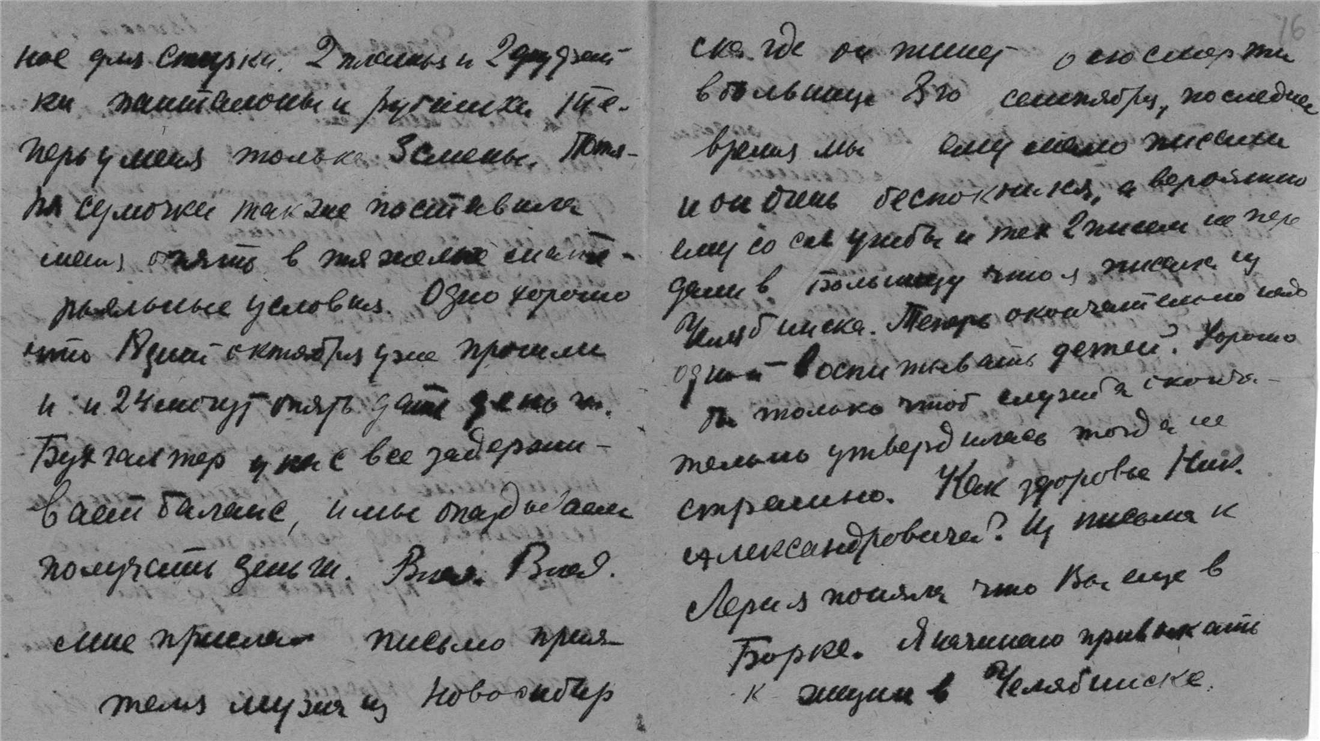 ное для стирки. 2 платья и 2
ки панталоны и рубашки. Те-
перь у меня только 3 смены. Поте-
ря сумочки также поставила
меня опять в тяжелые мате-
рьяльные условия. Одно хорошо
что дни октября уже прошли
и 24 могут опять дать деньги.
Бухгалтер у нас все задержи-
вает баланс, и мы опаздываем
получать деньги. Влад. Влад.
мне прислал письмо прия-
теля мужа из Новосибир
76
ска где он пишет о его смерти
в больнице 3го сентября, последнее
время мы ему мало писали
и он очень беспокоился, а вероятно
ему со службы и тех 2 писем не пере
дали в больницу что я писала из
Челябинска. Теперь окончательно надо
одной воспитывать детей. Хорошо
бы только чтоб служба оконча-
тельно утвердилась тогда не
страшно. Как здоровье Ник.
Александровича? Из письма к
Лере я поняла что Вы еще в
Борке. Я начинаю привыкать
к жизни в Челябинске.